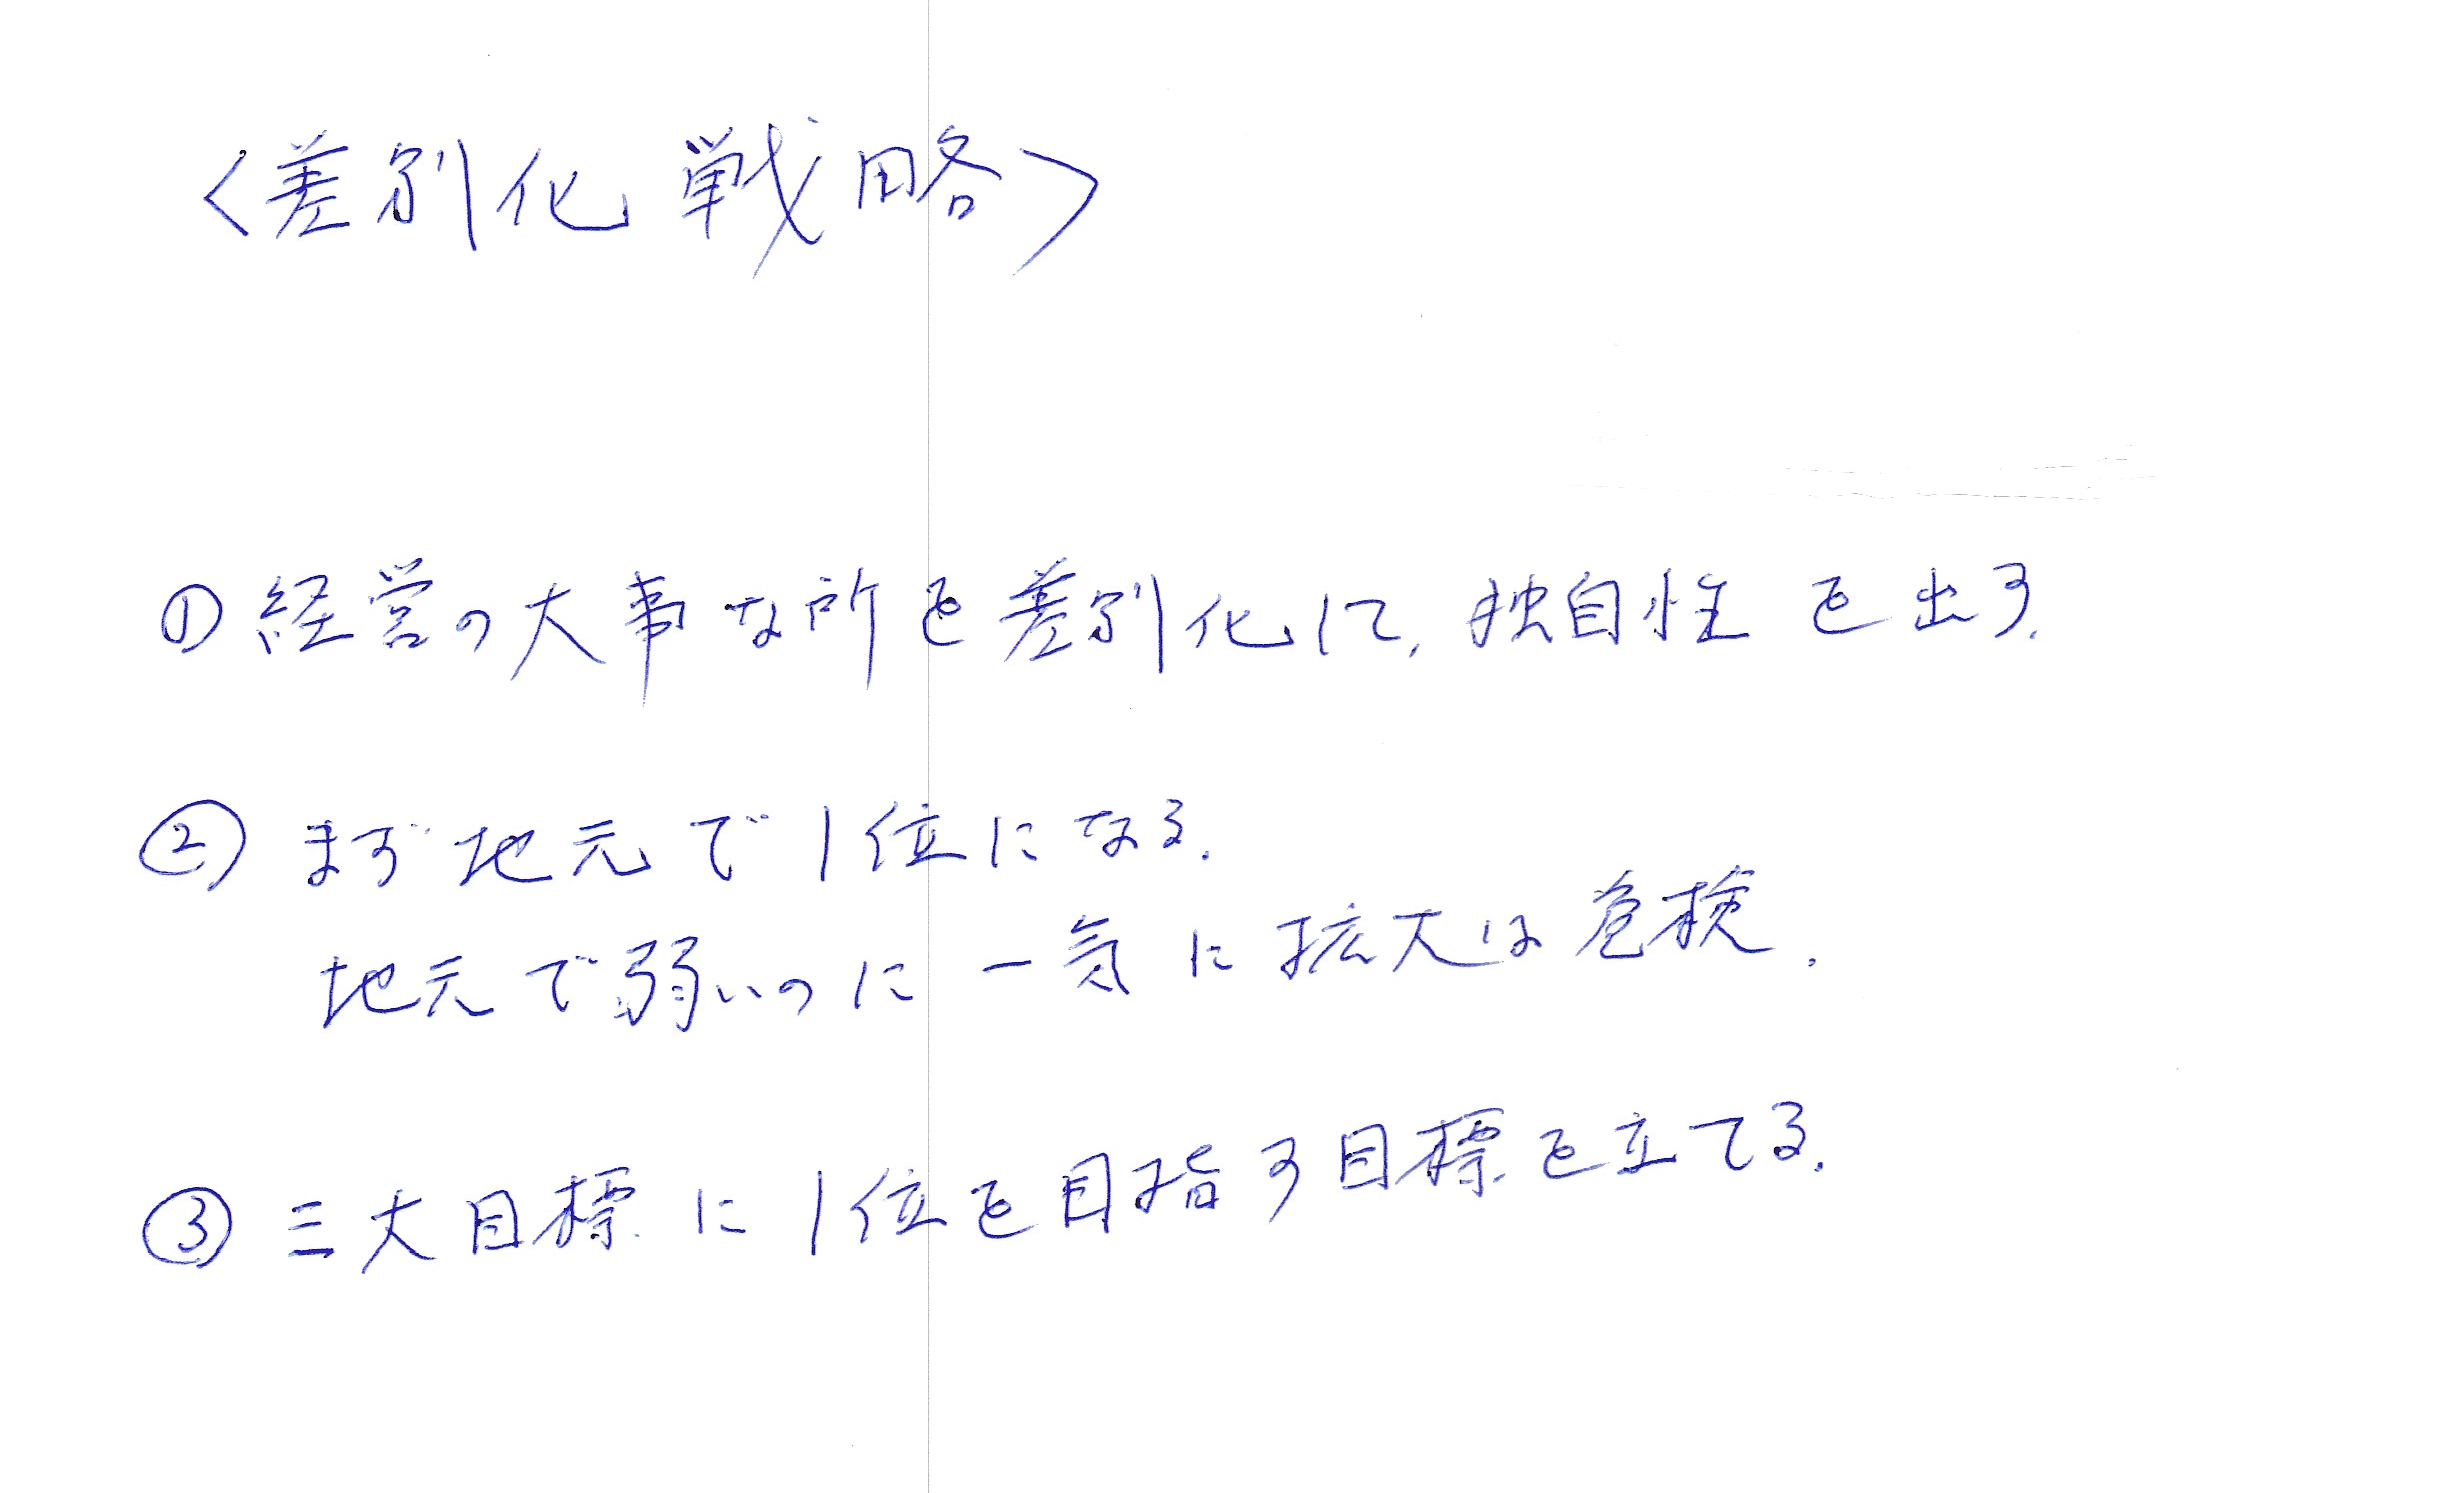 <差別化戦略>
①経営の大事な所を差別化して、独自性を出す。
②まず地元で1位になる。
地元で弱いのに一気に拡大は危検。
③三大目標に1位を目指す目標を立てる。